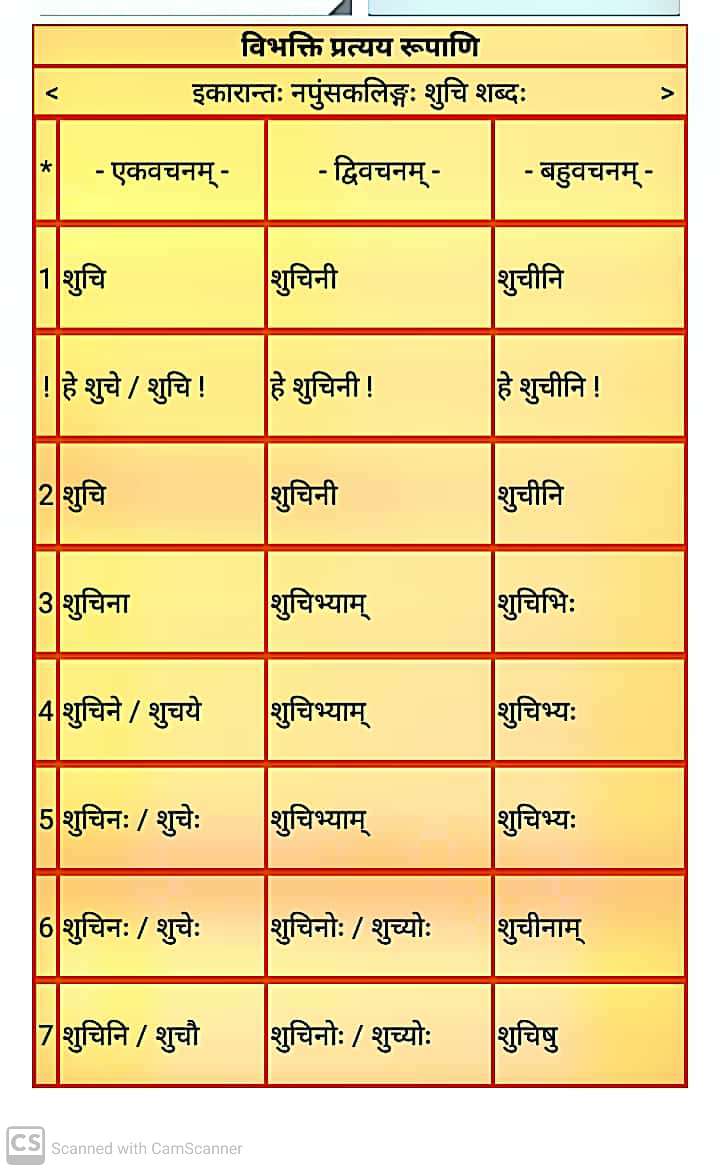 विभक्ति प्रत्यय रूपाणि
< इकारान्तः नपुंसकलिङ्गः शुचि शब्दः >
* - एकवचनम् - - द्विवचनम् - - बहुवचनम् -
1 शुचि शुचिनी शुचीनि
! हे शुचे / शुचि ! हे शुचिनी ! हे शुचीनि !
2 शुचि शुचिनी शुचीनि
3 शुचिना शुचिभ्याम् शुचिभिः
4 शुचिने / शुचये शुचिभ्याम् शुचिभ्यः
5 शुचिनः / शुचेः शुचिभ्याम् शुचिभ्यः
6 शुचिनः / शुचेः शुचिनोः / शुच्योः शुचीनाम्
7 शुचिनि / शुचौ शुचिनोः / शुच्योः शुचिषु
CS Scanned with CamScanner